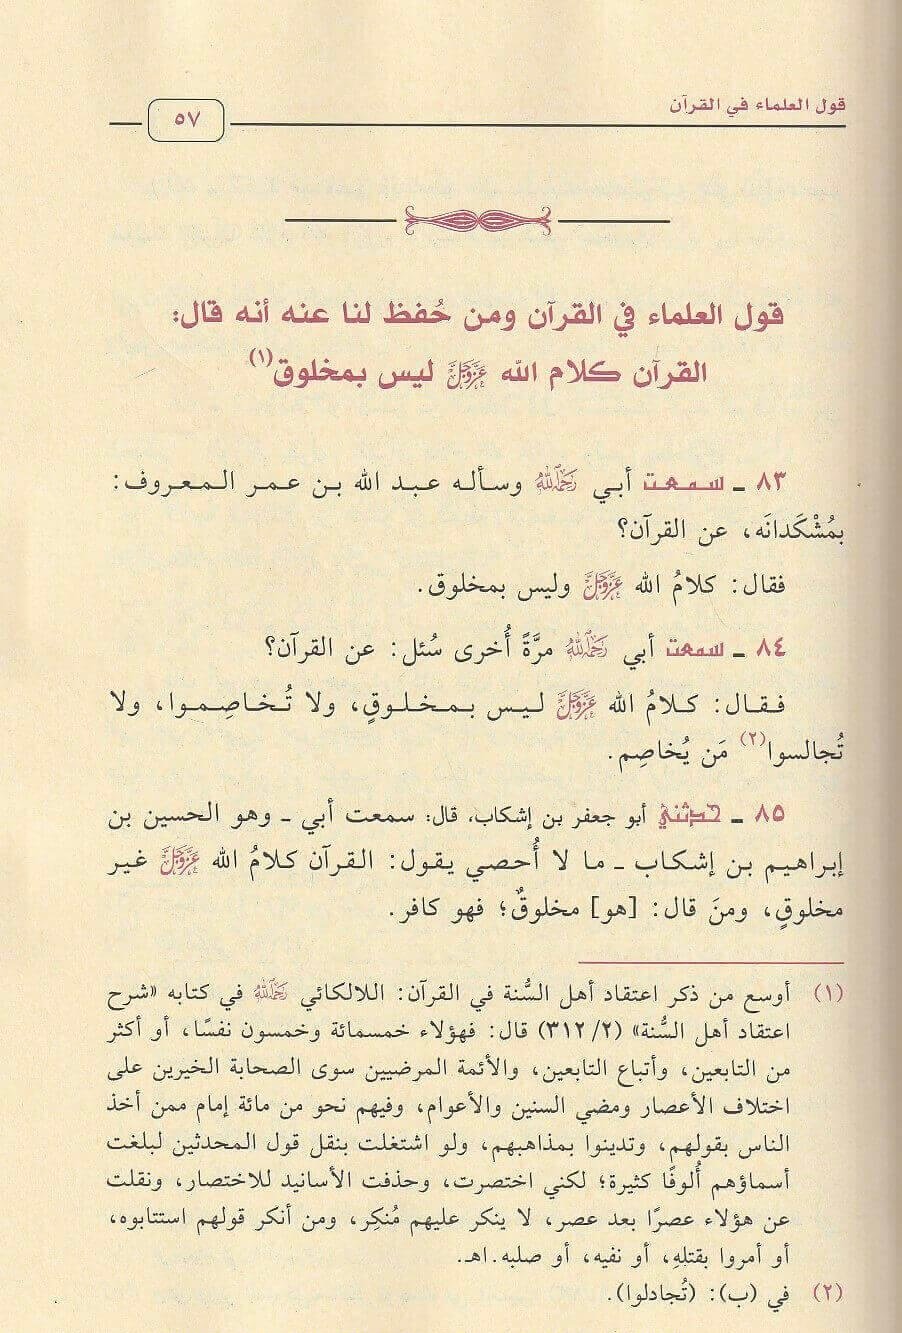 قول العلماء في القرآن
٥٧
قول العلماء في القرآن ومن حُفظ لنا عنه أنه قال:
القرآن كلام الله عَزَّوَجَلَّ ليس بمخلوق(١)
٨٣ ـ سمعت أبي رَحِمَهُ اللَّهُ وسأله عبد الله بن عمر المعروف:
بمُشْكَدانَه، عن القرآن؟
فقال: كلامُ الله عَزَّوَجَلَّ وليس بمخلوق.
٨٤ ـ سمعت أبي رَحِمَهُ اللَّهُ مرَّةً أُخرى سُئل: عن القرآن؟
فقال: كلامُ الله عَزَّوَجَلَّ ليس بمخلوقٍ، ولا تُخاصِموا، ولا
تُجالسوا(٢) مَن يُخاصِم.
٨٥ ـ حدثني أبو جعفر بن إشكاب، قال: سمعت أبي ـ وهو الحسين بن
إبراهيم بن إشكاب ـ ما لا أُحصي يقول: القرآن كلامُ الله عَزَّوَجَلَّ غير
مخلوقٍ، ومنَ قال: [هو] مخلوقٌ؛ فهو كافر.
(١) أوسع من ذكر اعتقاد أهل السُّنة في القرآن: اللالكائي رَحِمَهُ اللَّهُ في كتابه «شرح
اعتقاد أهل السُّنة» (٢/ ٣١٢) قال: فهؤلاء خمسمائة وخمسون نفسًا، أو أكثر
من التابعين، وأتباع التابعين، والأئمة المرضيين سوى الصحابة الخيرين على
اختلاف الأعصار ومضي السنين والأعوام، وفيهم نحو من مائة إمام ممن أخذ
الناس بقولهم، وتدينوا بمذاهبهم، ولو اشتغلت بنقل قول المحدثين لبلغت
أسماؤهم أُلوفًا كثيرة؛ لكني اختصرت، وحذفت الأسانيد للاختصار، ونقلت
عن هؤلاء عصرًا بعد عصر، لا ينكر عليهم مُنكِر، ومن أنكر قولهم استتابوه،
أو أمروا بقتلهِ، أو نفيه، أو صلبه.اهـ.
(٢) في (ب): (تُجادلوا).